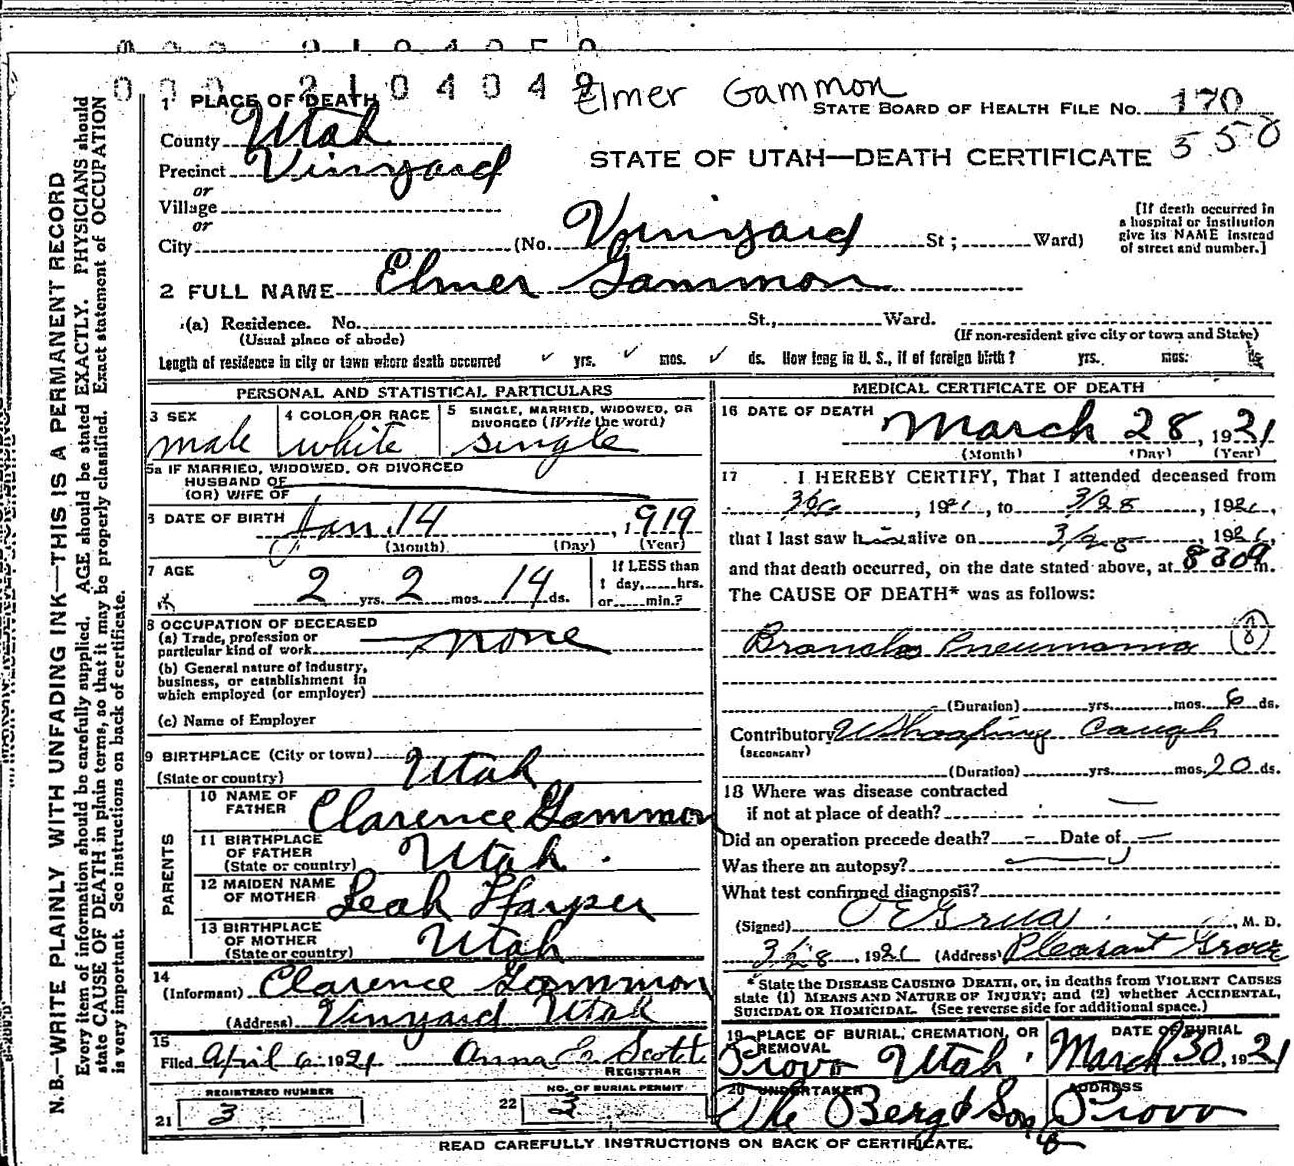 000 2104049
Elmer Gammon
1 PLACE OF DEATH
STATE BOARD OF HEALTH FILE No. 170
County Utah
558
Precinct Vinyard
STATE OF UTAH—DEATH CERTIFICATE
or
Village
or
City (No. Vinyard St; Ward)
[If death occurred in
a hospital or institution
give its NAME instead
of street and number.]
2 FULL NAME Elmer Gammon
(a) Residence. No. St., Ward.
(Usual place of abode)
(If non-resident give city or town and State)
Length of residence in city or town where death occurred yrs. mos. ds. How long in U. S., if of foreign birth? yrs. mos. ds
PERSONAL AND STATISTICAL PARTICULARS
3 SEX
male
4 COLOR OR RACE
white
5 SINGLE, MARRIED, WIDOWED, OR
DIVORCED (Write the word)
single
5a IF MARRIED, WIDOWED, OR DIVORCED
HUSBAND OF
(OR) WIFE OF
6 DATE OF BIRTH Jan. 14, 1919
(Month) (Day) (Year)
7 AGE
2 yrs. 2 mos. 14 ds.
If LESS than
1 day, hrs.
or min.?
8 OCCUPATION OF DECEASED
(a) Trade, profession or
particular kind of work none
(b) General nature of industry,
business, or establishment in
which employed (or employer)
(c) Name of Employer
9 BIRTHPLACE (City or town) Utah
(State or country)
PARENTS
10 NAME OF
FATHER Clarence Gammon
11 BIRTHPLACE
OF FATHER
(State or country) Utah
12 MAIDEN NAME
OF MOTHER Leah Harper
13 BIRTHPLACE
OF MOTHER
(State or country) Utah
14
(Informant) Clarence Gammon
(Address) Vinyard Utah
15
Filed April 6 1921 Anna E. Scott
REGISTRAR
REGISTERED NUMBER
21 3
NO. OF BURIAL PERMIT
22 3
MEDICAL CERTIFICATE OF DEATH
16 DATE OF DEATH
March 28, 1921
(Month) (Day) (Year)
17 I HEREBY CERTIFY, That I attended deceased from
, 1921, to 3/28, 1921,
that I last saw him alive on 3/28, 1921,
and that death occurred, on the date stated above, at 8 30 a m.
The CAUSE OF DEATH* was as follows:
Broncho Pneumonia (8)
(Duration) yrs. mos. 6 ds.
Contributory Whooping Cough
(SECONDARY)
(Duration) yrs. mos. 20 ds.
18 Where was disease contracted
if not at place of death?
Did an operation precede death? Date of
Was there an autopsy?
What test confirmed diagnosis?
(Signed) O E Grua, M. D.
3/28, 1921 (Address) Pleasant Grove
*State the DISEASE CAUSING DEATH, or, in deaths from VIOLENT CAUSES
state (1) MEANS AND NATURE OF INJURY; and (2) whether ACCIDENTAL,
SUICIDAL OR HOMICIDAL. (See reverse side for additional space.)
19 PLACE OF BURIAL, CREMATION, OR
REMOVAL
Provo Utah.
DATE OF BURIAL
March 30, 1921
20 UNDERTAKER
The Berg & Son
ADDRESS
Provo
READ CAREFULLY INSTRUCTIONS ON BACK OF CERTIFICATE.
N. B.—WRITE PLAINLY WITH UNFADING INK—THIS IS A PERMANENT RECORD
Every item of information should be carefully supplied. AGE should be stated EXACTLY. PHYSICIANS should
state CAUSE OF DEATH in plain terms, so that it may be properly classified. Exact statement of OCCUPATION
is very important. See instructions on back of certificate.